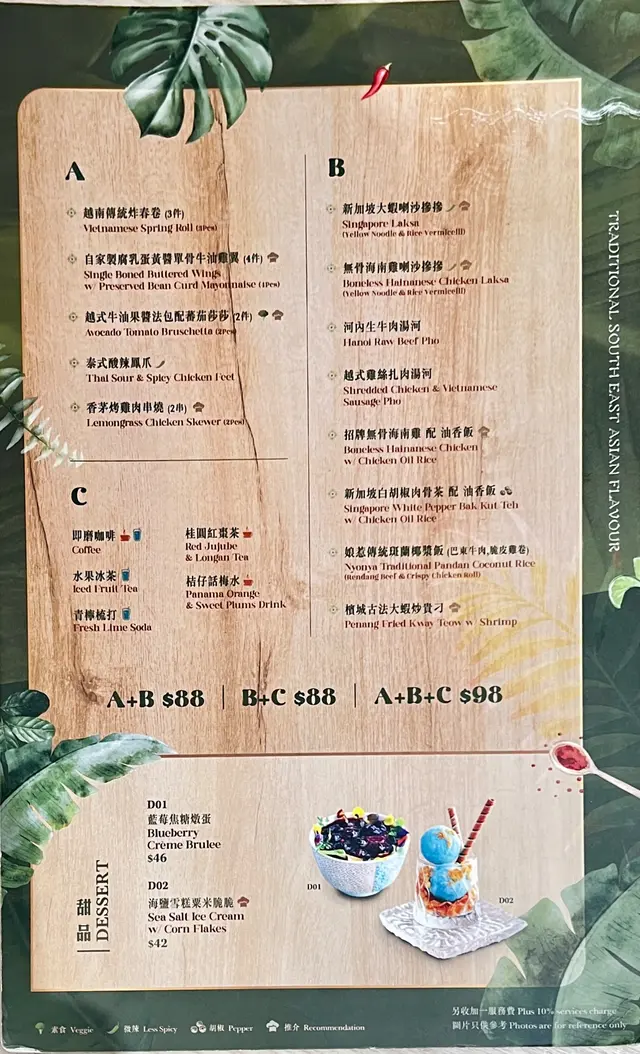 A
越南傳統炸春卷 (3件)
Vietnamese Spring Roll (3Pcs)
自家製腐乳蛋黃醬單骨牛油雞翼 (4件)
Single Boned Buttered Wings
w/ Preserved Bean Curd Mayonnaise (4Pcs)
越式牛油果醬法包配蕃茄莎莎 (2件)
Avocado Tomato Bruschetta (2Pcs)
泰式酸辣鳳爪
Thai Sour & Spicy Chicken Feet
香茅烤雞肉串燒 (2串)
Lemongrass Chicken Skewer (2Pcs)
B
新加坡大蝦喇沙摻摻
Singapore Laksa
(Yellow Noodle & Rice Vermicelli)
無骨海南雞喇沙摻摻
Boneless Hainanese Chicken Laksa
(Yellow Noodle & Rice Vermicelli)
河內生牛肉湯河
Hanoi Raw Beef Pho
越式雞絲扎肉湯河
Shredded Chicken & Vietnamese
Sausage Pho
招牌無骨海南雞 配 油香飯
Boneless Hainanese Chicken
w/ Chicken Oil Rice
新加坡白胡椒肉骨茶 配 油香飯
Singapore White Pepper Bak Kut Teh
w/ Chicken Oil Rice
娘惹傳統斑蘭椰漿飯 (巴東牛肉,脆皮雞卷)
Nyonya Traditional Pandan Coconut Rice
(Rendang Beef & Crispy Chicken Roll)
檳城古法大蝦炒貴刁
Penang Fried Kway Teow w/ Shrimp
C
即磨咖啡
Coffee
水果冰茶
Iced Fruit Tea
青檸梳打
Fresh Lime Soda
桂圓紅棗茶
Red Jujube
& Longan Tea
桔仔話梅水
Panama Orange
& Sweet Plums Drink
A+B $88 | B+C $88 | A+B+C $98
TRADITIONAL SOUTH EAST ASIAN FLAVOUR
甜品
DESSERT
D01
藍莓焦糖燉蛋
Blueberry
Crème Brulee
$46
D02
海鹽雪糕粟米脆脆
Sea Salt Ice Cream
w/ Corn Flakes
$42
D01
D02
素食 Veggie
微辣 Less Spicy
胡椒 Pepper
推介 Recommendation
另收加一服務費 Plus 10% services charge
圖片只供參考 Photos are for reference only